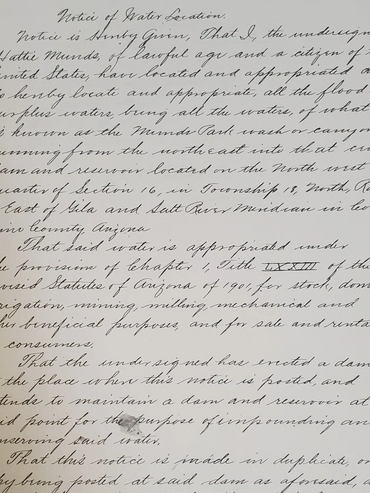 Notice of Water Location.
Notice is Hereby Given, That I, the undersign
Hattie Munds, of lawful age and a citizen of
United States, have located and appropriated a
o hereby locate and appropriate, all the flood
urplus waters, being all the waters, of what
s known as the Munds Park wash or canyon
unning from the northeast into that
am and reservoir located on the North west
uarter of Section 16, in Township 18, North, R
East of Gila and Salt River Meridian in Co
ino County, Arizona
That said water is appropriated under
e provision of Chapter 1, Title LXXIII of the
vised Statutes of Arizona of 1901, for stock, dom
rigation, mining, milling, mechanical and
her beneficial purposes, and for sale and renta
consumers.
That the undersigned has erected a dam
the place where this notice is posted, and
tends to maintain a dam and reservoir at
id point for the purpose of impounding an
nserving said water.
That this notice is made in duplicate, o
y being posted at said dam as aforesaid, a